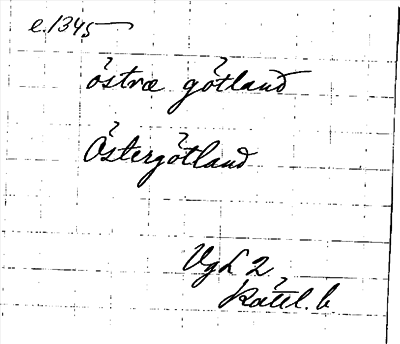 e. 1345
östræ götland
Östergötland
VgL 2
Rätel. b